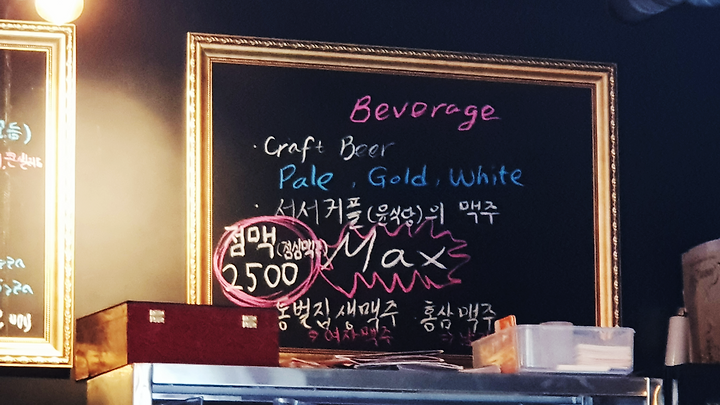 Beverage
· Craft Beer
Pale, Gold, White
· 서서커플(윤식당)의 맥주
점맥(점심맥주)
2500
Max
동벌집생맥주 · 홍삼맥주
⇒여자맥주